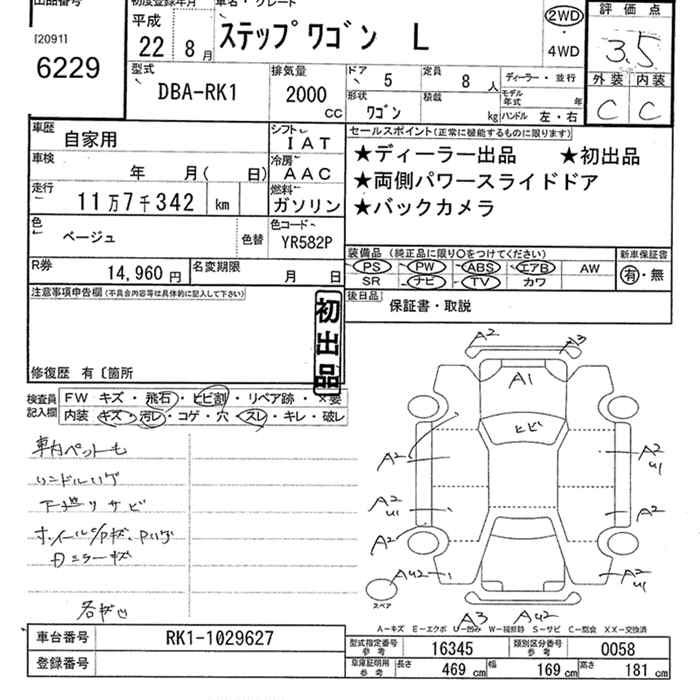 出品番号
[2091]
6229
初度登録年月
平成
22 8 月
車名・グレード
ステップワゴン L
2WD
・
4WD
評価点
3.5
外装 内装
C C
型式
DBA-RK1
排気量
2000
CC
ドア 5
定員 8 人
形状
ワゴン
積載
kg
ディーラー・並行
モデル年式 年
ハンドル 左・右
車歴
自家用
シフト
IAT
車検
年 月( 日)
冷房
AAC
走行
11万7千342 km
燃料
ガソリン
色
ベージュ
色替
色コード
YR582P
R券
14,960 円
名変期限
月 日
セールスポイント(正常に機能するものに限ります)
★ディーラー出品 ★初出品
★両側パワースライドドア
★バックカメラ
装備品 (純正品に限り○をつけてください)
PS PW ABS エアB AW
SR ナビ TV カワ
新車保証書
有・無
後日品
保証書・取説
注意事項申告欄(不具合内容等は具体的に記入して下さい)
初出品
修復歴 有〔箇所
検査員
記入欄
FW キズ・飛石・ヒビ割・リペア跡・×要
内装 キズ・汚レ・コゲ・穴・スレ・キレ・破レ
車内ペットも
下廻りサビ
A2 A3
A1
ヒビ
A2
A2
U1
A2
U1
A2
A2
AU2
A2
U1
スペア
A3 AU2
A-キズ E-エクボ U-凹み W-補修跡 S-サビ C-腐食 XX-交換済
車台番号
RK1-1029627
登録番号
型式指定番号
参考
16345
類別区分番号
参考
0058
車庫証明用
参考
長さ 469 cm
幅 169 cm
高さ 181 cm